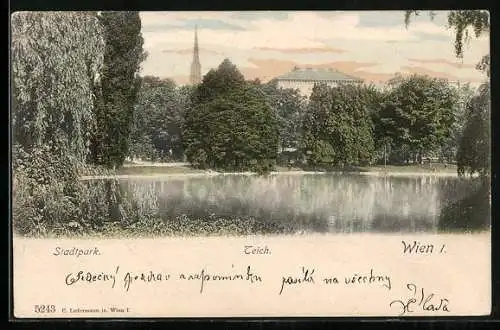 Stadtpark.
Teich.
Wien I.
Srdečný pozdrav a vzpomínku posílá na všechny
5243 C. Ledermann jr. Wien I